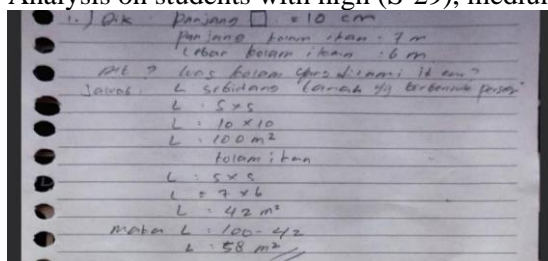 Analysis on students with high (S-29), medium
1.) Dik Panjang □ = 10 cm
Panjang kolam ikan : 7 m
Lebar kolam ikan : 6 m
Dit ? luas kolam yang
Jawab L sebidang tanah yg berbentuk persegi
L : s x s
L : 10 x 10
L : 100 m²
kolam ikan
L : s x s
L = 7 x 6
L : 42 m²
maka L : 100 - 42
L : 58 m²